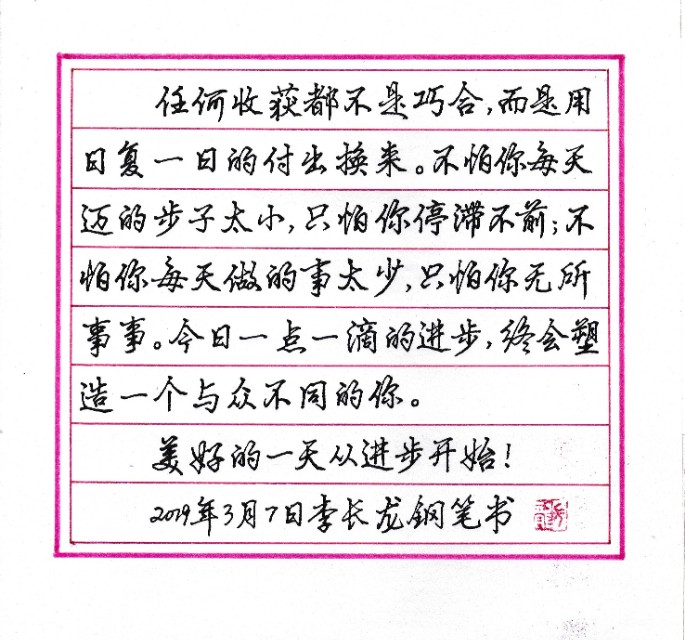 任何收获都不是巧合,而是用
日复一日的付出换来。不怕你每天
迈的步子太小,只怕你停滞不前;不
怕你每天做的事太少,只怕你无所
事事。今日一点一滴的进步,终会塑
造一个与众不同的你。
美好的一天从进步开始!
2019年3月7日李长龙钢笔书